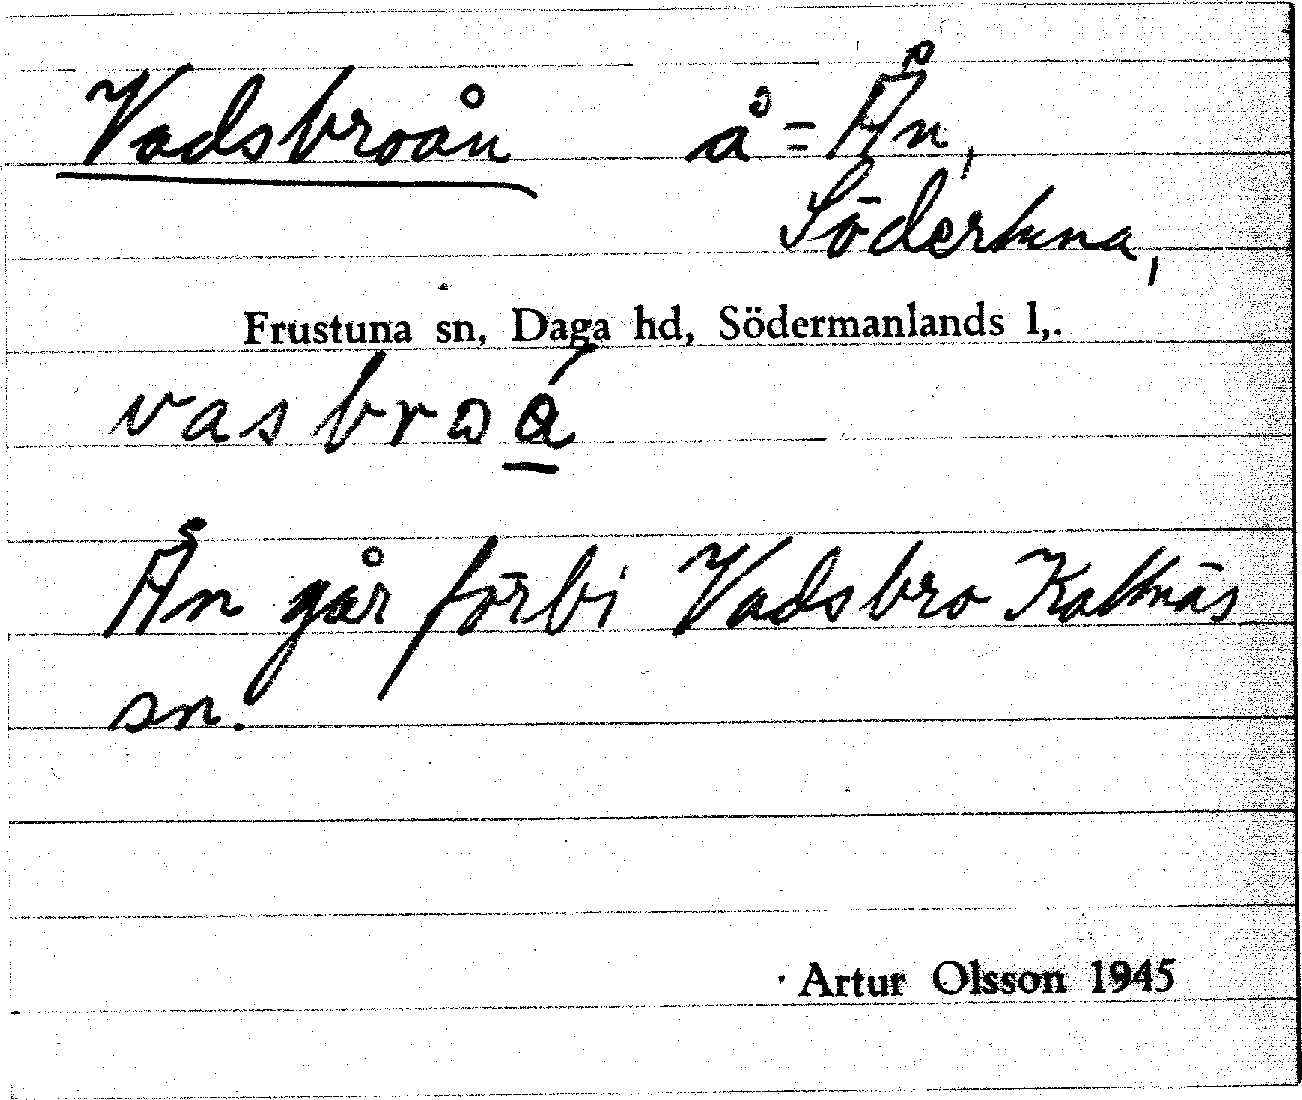 Vadsbroån å = Ån,
Södertuna,
Frustuna sn, Daga hd, Södermanlands l,.
vasbroá
Ån går förbi Vadsbro Kattnäs
sn.
Artur Olsson 1945